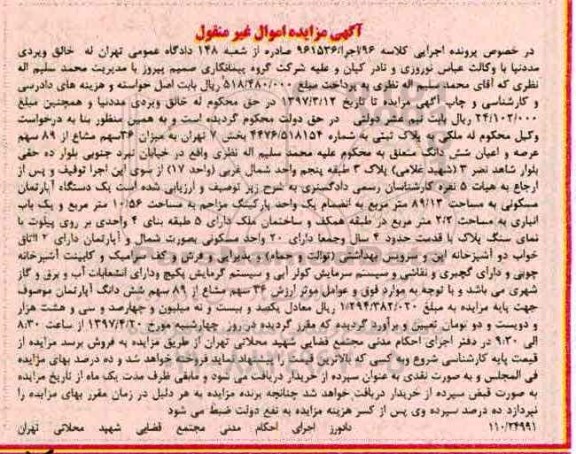 آگهی مزایده اموال غیر منقول
در خصوص پرونده اجرایی کلاسه ۹۶/اجرا/۹۶۱۵۳۶ صادره از شعبه ۱۴۸ دادگاه عمومی تهران له خالق ویردی
مددنیا با وکالت عباس نوروزی و نادر کیان و علیه شرکت گروه پیمانکاری صمیم پیروز با مدیریت محمد سلیم اله
نظری که آقای محمد سلیم اله نظری به پرداخت مبلغ ۵۱۸/۴۸۰/۰۰۰ ریال بابت اصل خواسته و هزینه های دادرسی
و کارشناسی و چاپ آگهی مزایده تا تاریخ ۱۳۹۷/۳/۱۲ در حق محکوم له خالق ویردی مددنیا و همچنین مبلغ
۲۴/۱۰۲/۰۰۰ ریال بابت نیم عشر دولتی در حق دولت محکوم گردیده است و به همین منظور بنا به درخواست
وکیل محکوم له ملکی به پلاک ثبتی به شماره ۴۴۷۶/۵۱۸۱۵۴ بخش ۷ تهران به میزان ۳۶سهم مشاع از ۸۹ سهم
عرصه و اعیان شش دانگ متعلق به محکوم علیه محمد سلیم اله نظری واقع در خیابان نبرد جنوبی بلوار ده حقی
بلوار شاهد نصر ۳ (شهید غلامی) پلاک ۳ طبقه پنجم واحد شمال غربی (واحد ۱۷) از سوی این اجرا توقیف و پس از
ارجاع به هیات ۵ نفره کارشناسان رسمی دادگستری به شرح زیر توصیف و ارزیابی شده است یک دستگاه آپارتمان
مسکونی به مساحت ۸۹/۱۳ متر مربع به انضمام یک واحد پارکینگ مزاحم به مساحت ۱۰/۵۶ متر مربع و یک باب
انباری به مساحت ۲/۲ متر مربع در طبقه همکف و ساختمان ملک دارای ۵ طبقه بنای ۴ واحدی بر روی پیلوت با
نمای سنگ پلاک با قدمت حدود ۴ سال وجمعا دارای ۲۰ واحد مسکونی بصورت شمال و آپارتمان دارای ۲ اتاق
خواب دو آشپزخانه اپن و سرویس بهداشتی (توالت و حمام) و پذیرایی و فرش و کف سرامیک و کابینت آشپزخانه
چوبی و دارای گچبری و نقاشی و سیستم سرمایش کولر آبی و سیستم گرمایش پکیج ودارای انشعابات آب و برق و گاز
شهری می باشد و با توجه به موارد فوق و عوامل موثر ارزش ۳۶ سهم مشاع از ۸۹ سهم شش دانگ آپارتمان موصوف
جهت پایه مزایده به مبلغ ۱/۲۹۴/۳۸۲/۰۲۰ ریال معادل یکصد و بیست و نه میلیون و چهارصد و سی و هشت هزار
و دویست و دو تومان تعیین و برآورد گردیده که مقرر گردیده در روز چهارشنبه مورخ ۱۳۹۷/۴/۲۰ از ساعت ۸:۳۰
الی ۹:۳۰ در دفتر اجرای احکام مدنی مجتمع قضایی شهید محلاتی تهران از طریق مزایده به فروش برسد مزایده از
قیمت پایه کارشناسی شروع و به کسی که بالاترین قیمت را پیشنهاد نماید فروخته خواهد شد و ده درصد بهای مزایده
فی المجلس و به صورت نقدی به عنوان سپرده از خریدار دریافت می شود و مابقی ظرف مدت یک ماه از تاریخ مزایده
به صورت قبض سپرده از خریدار دریافت خواهد شد چنانچه برنده مزایده به هر دلیل در زمان مقرر بهای مزایده را
نپردازد ده درصد سپرده وی پس از کسر هزینه مزایده به نفع دولت ضبط می شود
۱۱۰/۲۴۹۹۱ دادورز اجرای احکام مدنی مجتمع قضایی شهید محلاتی تهران